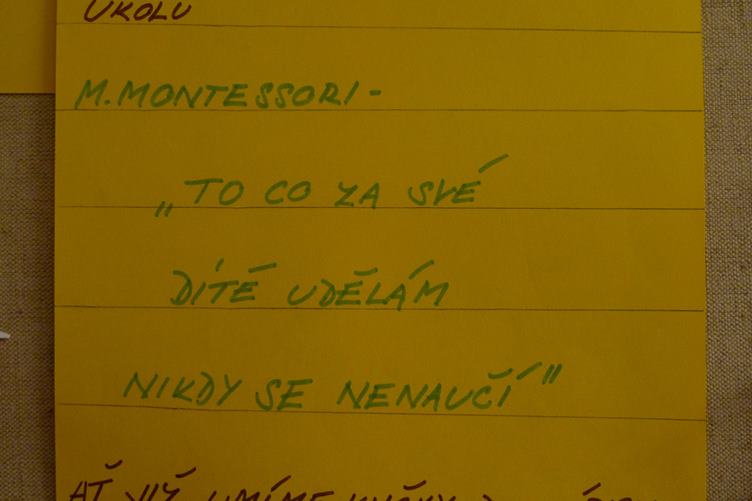 ÚKOLU
M. MONTESSORI -
„TO CO ZA SVÉ
DÍTĚ UDĚLÁM
NIKDY SE NENAUČÍ"
AŤ JIŽ UMÍME